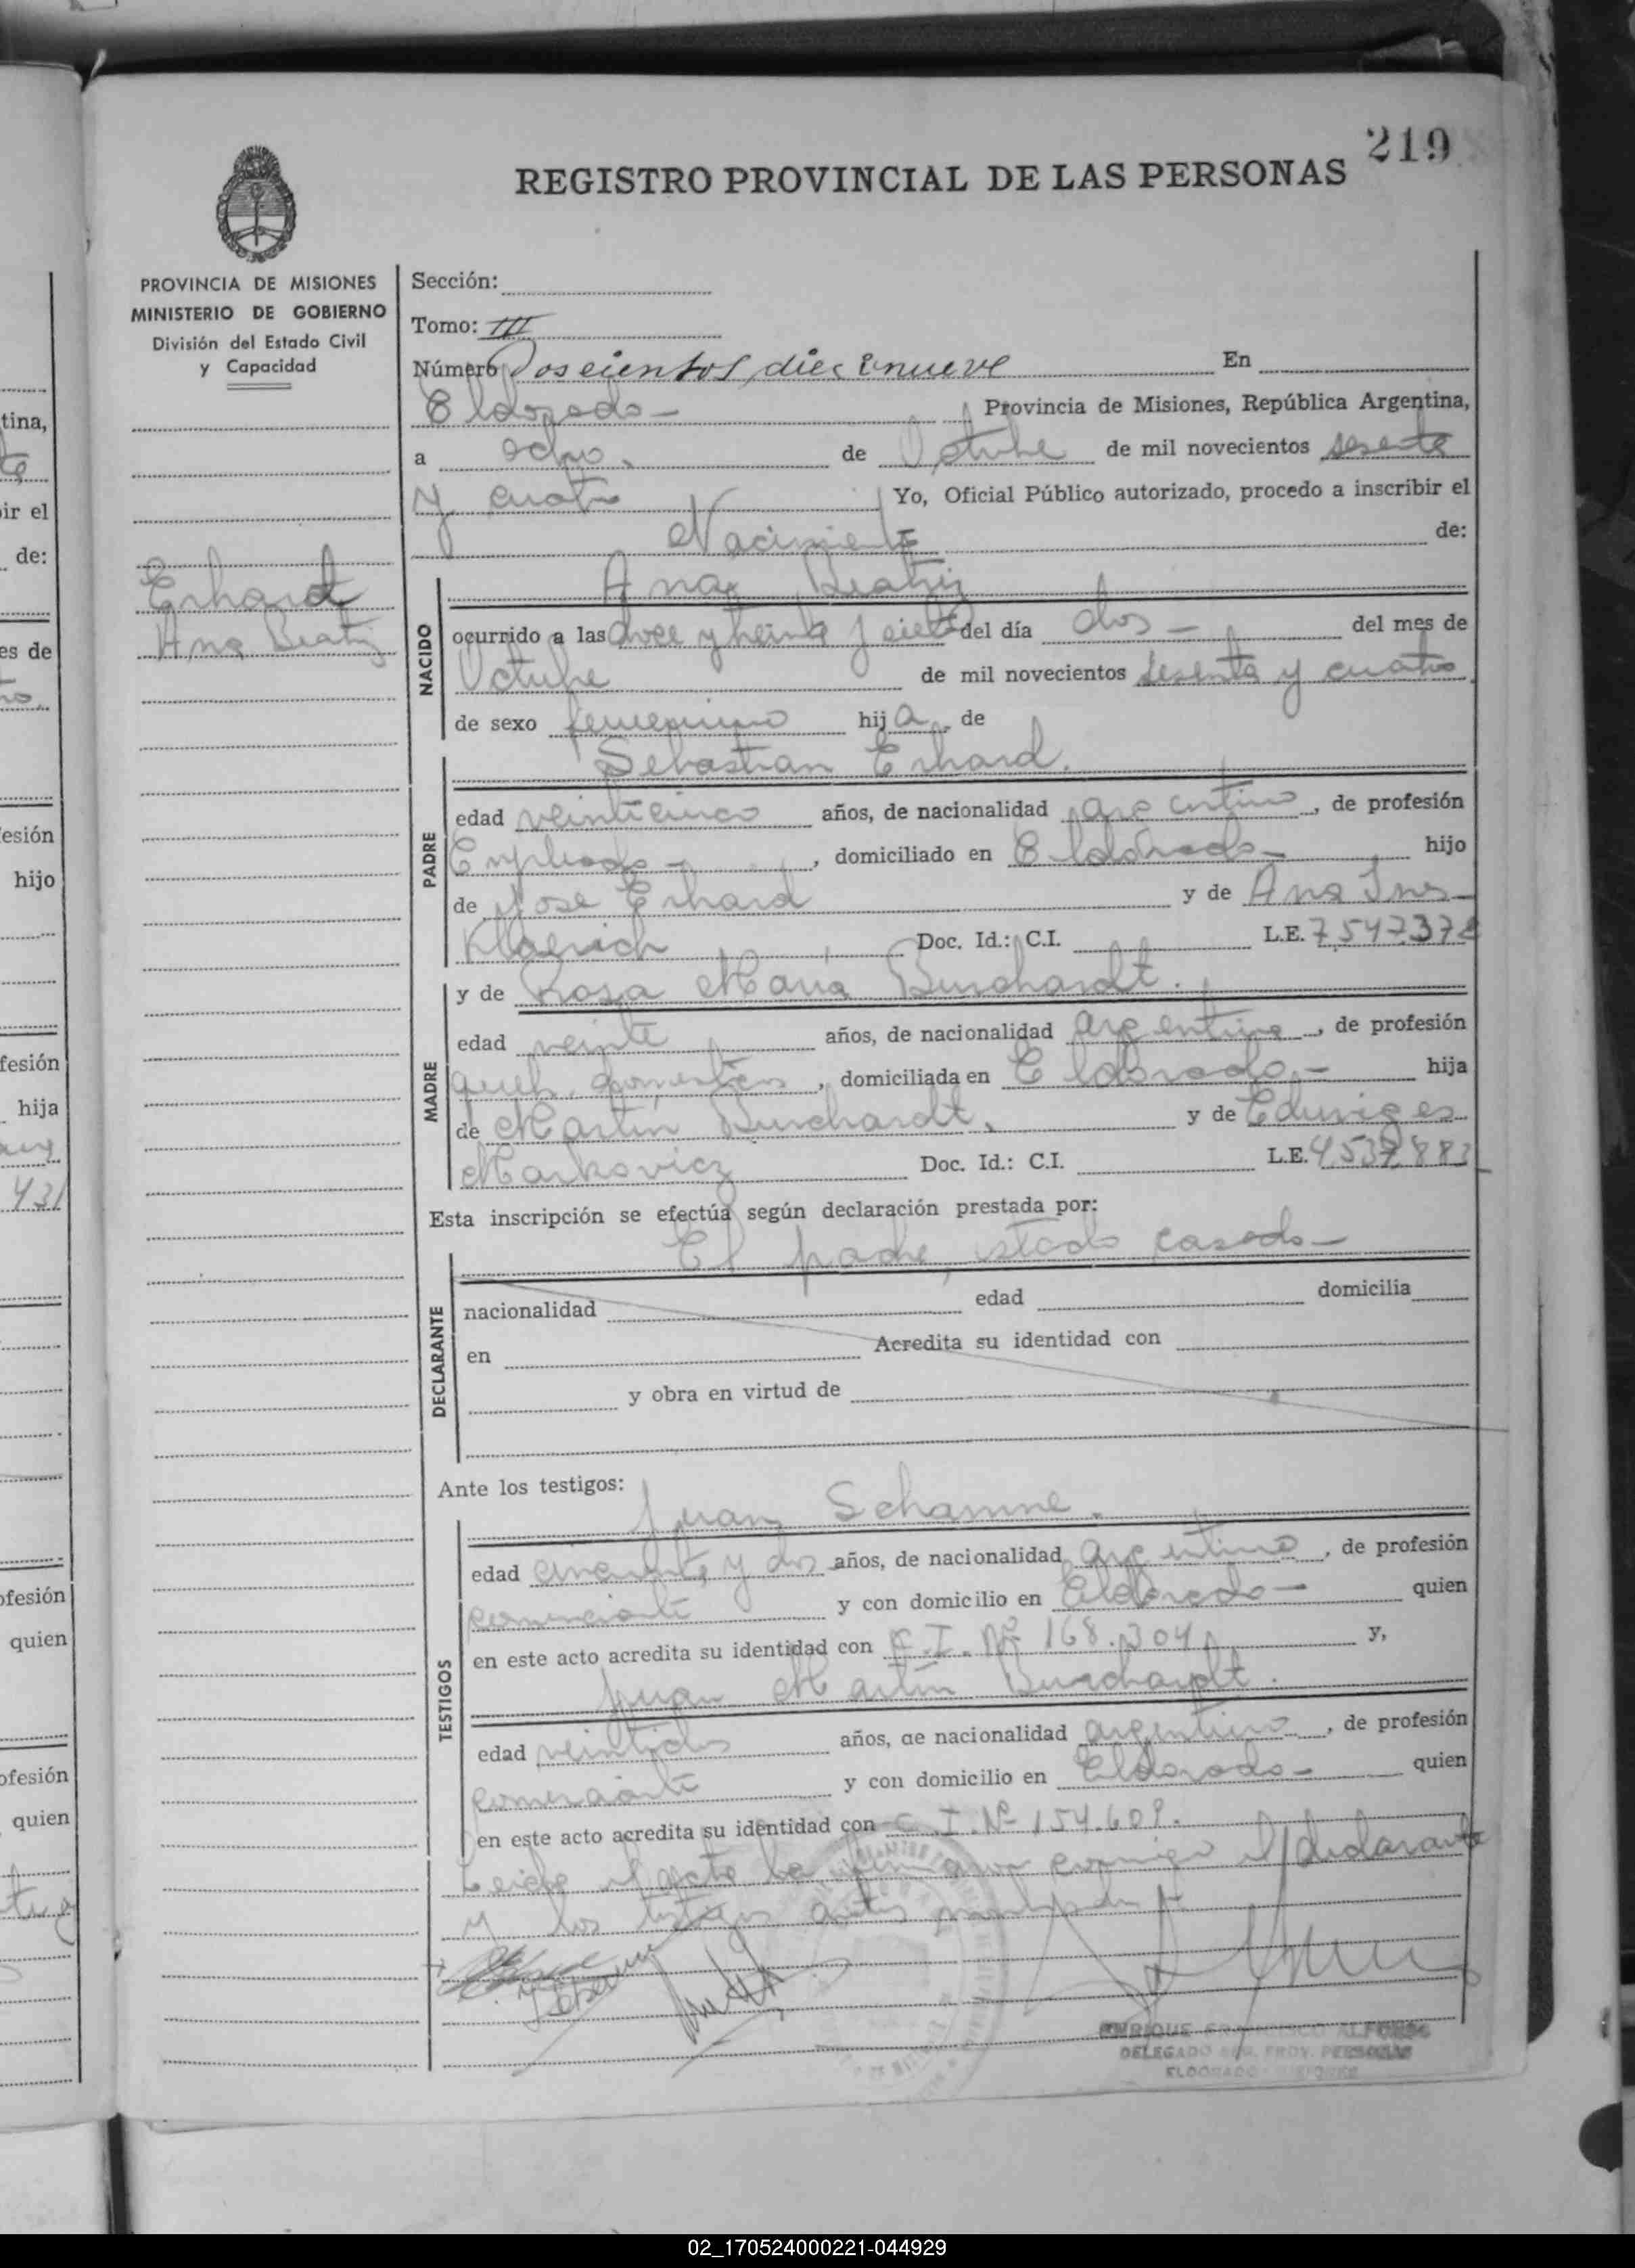 219
REGISTRO PROVINCIAL DE LAS PERSONAS
PROVINCIA DE MISIONES
MINISTERIO DE GOBIERNO
División del Estado Civil
y Capacidad
Erhard
Ana Beatriz
Sección:
Tomo: III
Número Doscientos diecinueve En
Eldorado - Provincia de Misiones, República Argentina,
a ocho. de Octubre de mil novecientos sesenta
y cuatro Yo, Oficial Público autorizado, procedo a inscribir el
Nacimiento de:
NACIDO
Ana Beatriz
ocurrido a las doce y treinta y siete del día dos - del mes de
Octubre de mil novecientos sesenta y cuatro
de sexo femenino hija de
PADRE
Sebastian Erhard.
edad veinticinco años, de nacionalidad argentino, de profesión
Empleado -, domiciliado en Eldorado - hijo
de José Erhard y de Ana Ines
Doc. Id.: C.I. L.E. 7.547.378
y de Rosa María Burchardt.
MADRE
edad veinte años, de nacionalidad argentina, de profesión
queh. domesticos, domiciliada en Eldorado. - hija
de Martin Burchardt, y de Eduviges
Markovicz Doc. Id.: C.I. L.E. 4.539.883
Esta inscripción se efectúa según declaración prestada por:
El padre, estado casado -
DECLARANTE
nacionalidad edad domicilia
en Acredita su identidad con
y obra en virtud de
Ante los testigos:
TESTIGOS
Juan Schamne.
edad cincuenta y dos años, de nacionalidad argentino, de profesión
comerciante y con domicilio en Eldorado - quien
en este acto acredita su identidad con C.I. Nº 168.304 y,
Juan Martín Burchardt.
edad veintidos años, de nacionalidad argentino, de profesión
comerciante y con domicilio en Eldorado - quien
en este acto acredita su identidad con C.I. Nº 154.609.
Leida el acta la firman conmigo el declarante
y los testigos antes
ENRIQUE FRANCISCO ALFONSO
DELEGADO REG. PROV. PERSONAS
ELDORADO - MISIONES
tina,
ir el
de:
es de
esión
hijo
fesión
hija
431
ofesión
quien
ofesión
quien
02_170524000221-044929